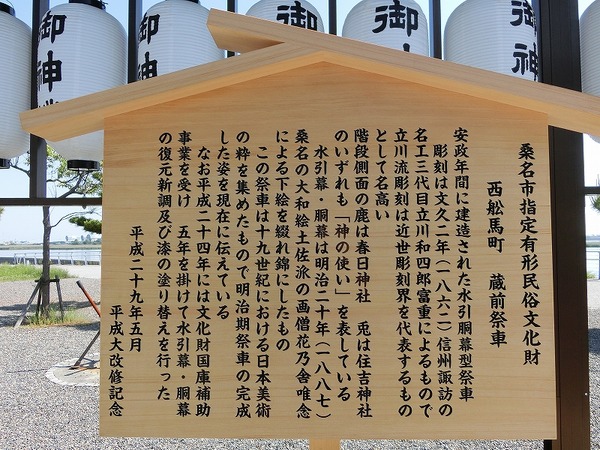 桑名市指定有形民俗文化財
西舩馬町　蔵前祭車
安政年間に建造された水引胴幕型祭車
彫刻は文久二年（一八六二）信州諏訪の
名工三代目立川和四郎富重によるもので
立川流彫刻は近世彫刻界を代表するもの
として名高い
階段側面の鹿は春日神社　兎は住吉神社
のいずれも「神の使い」を表している
水引幕・胴幕は明治二十年（一八八七）
桑名の大和絵土佐派の画僧花乃舎唯念
による下絵を綴れ錦にしたもの
この祭車は十九世紀における日本美術
の粋を集めたもので明治期祭車の完成
した姿を現在に伝えている
なお平成二十四年には文化財国庫補助
事業を受け　五年を掛けて水引幕・胴幕
の復元新調及び漆の塗り替えを行った
平成二十九年五月
平成大改修記念
御神
御神
御
御神
御神